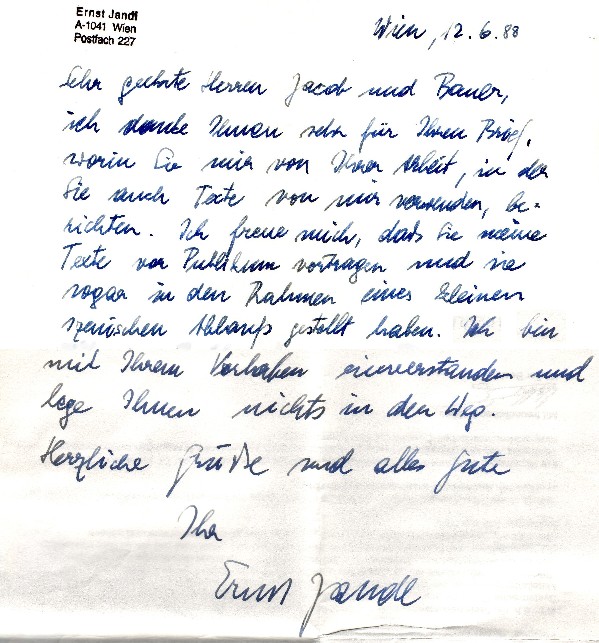 Ernst Jandl
A-1041 Wien
Postfach 227
Wien, 12.6.88
Sehr geehrte Herren Jacob und Bauer,
ich danke Ihnen sehr für Ihren Brief,
worin Sie mir von Ihrer Arbeit, in der
Sie auch Texte von mir verwenden, be-
richten. Ich freue mich, daß Sie meine
Texte vor Publikum vortragen und sie
sogar in den Rahmen eines kleinen
szenischen Ablaufs gestellt haben. Ich bin
mit Ihrem Vorhaben einverstanden und
lege Ihnen nichts in den Weg.
Herzliche Grüße und alles Gute
Ihr
Ernst Jandl